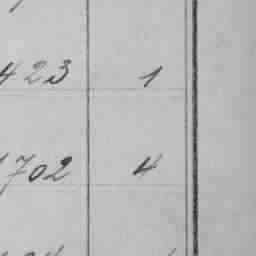 423 1
1702 4